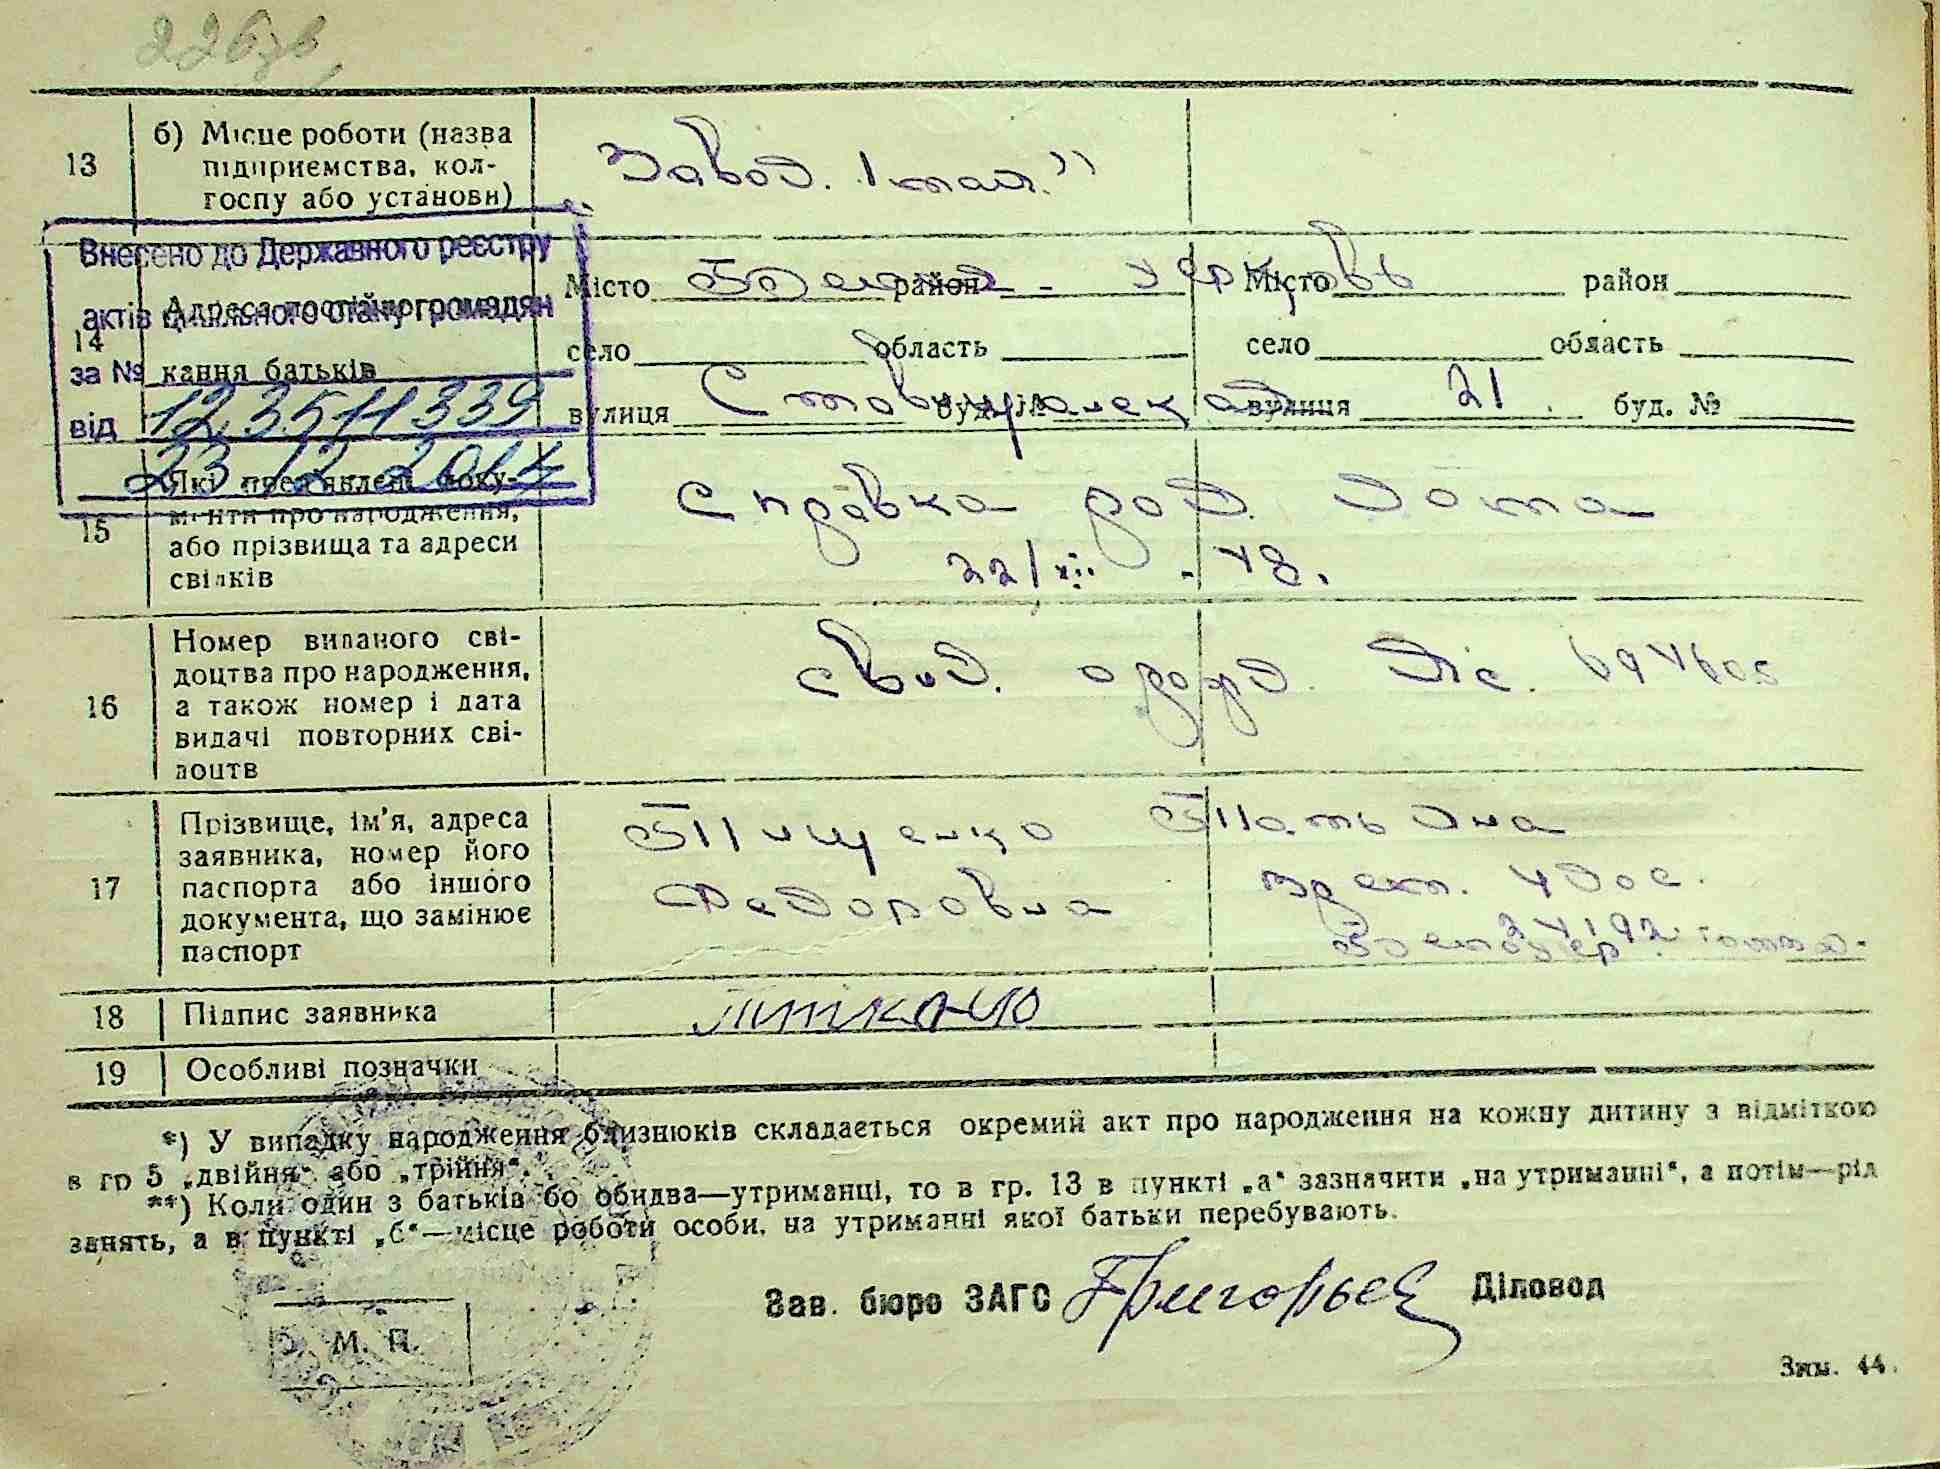 226зв
13 б) Місце роботи (назва
підприємства, кол-
госпу або установи)
Завод. 1 мая."
Внесено до Державного реєстру
актів цивільного стану громадян
за №
від 12,3511339
23 12 2014
14 Адреса постійного
кання батьків
Місто Белая район - Церковь Місто район
село область село область
вулиця буд. вулиця 21 буд. №
15 Які пред'явлені доку-
менти про народження,
або прізвища та адреси
свідків
Справка род. дома
22/XII - 48.
16 Номер виданого сві-
доцтва про народження,
а також номер і дата
видачі повторних сві-
доцтв
свид. о рожд. 694605
17 Прізвище, ім'я, адреса
заявника, номер його
паспорта або іншого
документа, що замінює
паспорт
Тищенко Татьяна
Федоровна
18 Підпис заявника
19 Особливі позначки
*) У випадку народження близнюків складається окремий акт про народження на кожну дитину з відміткою
в гр 5 „двійня“ або „трійня“.
**) Коли один з батьків бо обидва—утриманці, то в гр. 13 в пункті „а“ зазначити „на утриманні“, а потім—рід
занять, а в пункті „б“—місце роботи особи, на утриманні якої батьки перебувають.
Зав. бюро ЗАГС Григорьев Діловод
М. П.
Зам. 44.